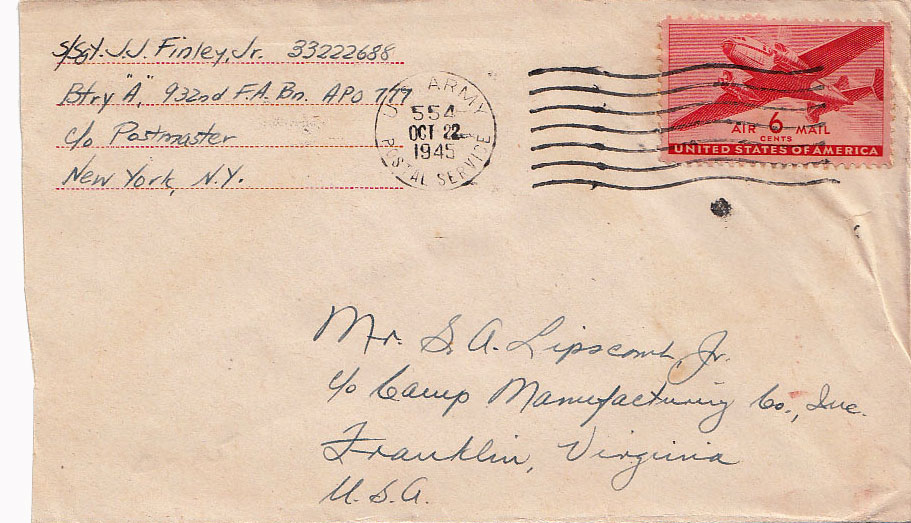 S/Sgt. J.J. Finley, Jr. 33222688
Btry "A", 932nd F.A. Bn. APO 777
c/o Postmaster
New York, N.Y.
U.S. ARMY
554
OCT 22
1945
POSTAL SERVICE
AIR 6 MAIL
CENTS
UNITED STATES OF AMERICA
Mr. S. A. Lipscomb, Jr.
c/o Camp Manufacturing Co., Inc.
Franklin, Virginia
U.S.A.